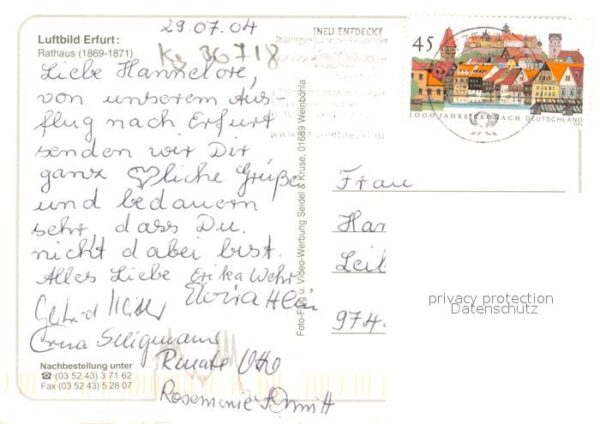 29.07.04
Luftbild Erfurt:
Rathaus (1869-1871)
Ks 36718
NEU ENTDECKT
Liebe Hannelore,
von unserem Aus-
flug nach Erfurt
senden wir Dir
ganz ♡liche Grüße
und bedauern
sehr, dass Du
nicht dabei bist.
Alles Liebe Erika Wehr
Erna Seligmann
Renate
Rosemarie Schmitt
Nachbestellung unter
☎ (03 52 43) 3 71 62
Fax (03 52 43) 5 28 07
Foto-Flug u. Video-Werbung Seidel & Kruse, 01689 Weinböhla
45
1000 JAHRE KRONACH DEUTSCHLAND
Frau
Han
Leib
974
privacy protection
Datenschutz